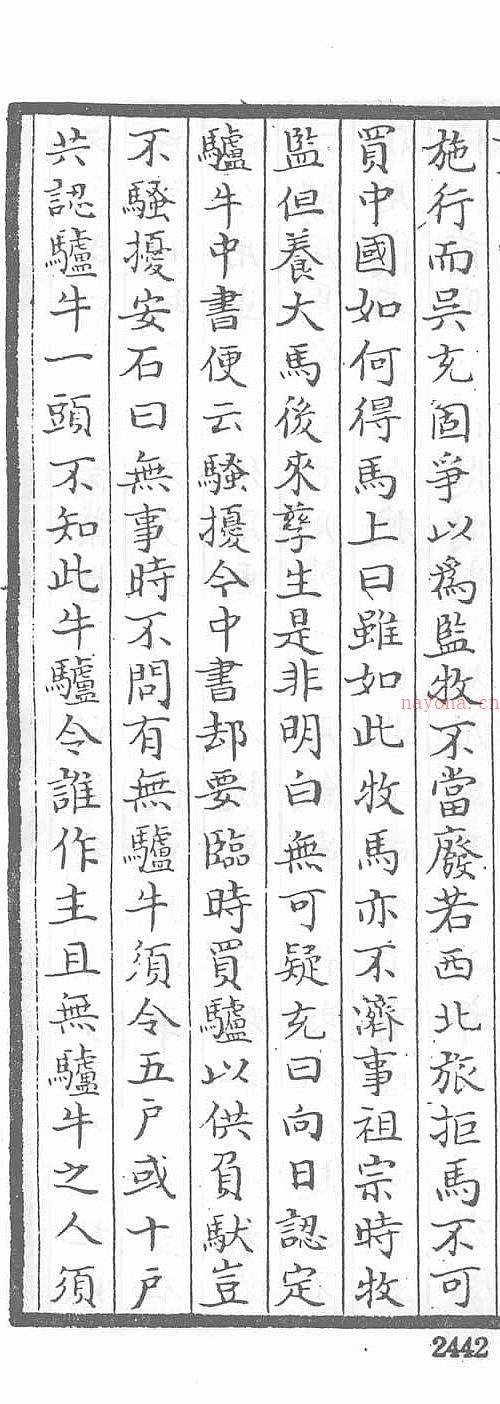 施行而吳充固爭以爲監牧不當廢若西北旅拒馬不可
買中國如何得馬上曰雖如此牧馬亦不濟事祖宗時牧
監但養大馬後來孳生是非明白無可疑充曰向日認定
驢牛中書便云騷擾今中書却要臨時買驢以供負馱豈
不騷擾安石曰無事時不問有無驢牛須令五戶或十戶
共認驢牛一頭不知此牛驢令誰作主且無驢牛之人須
nayona.cn
2442